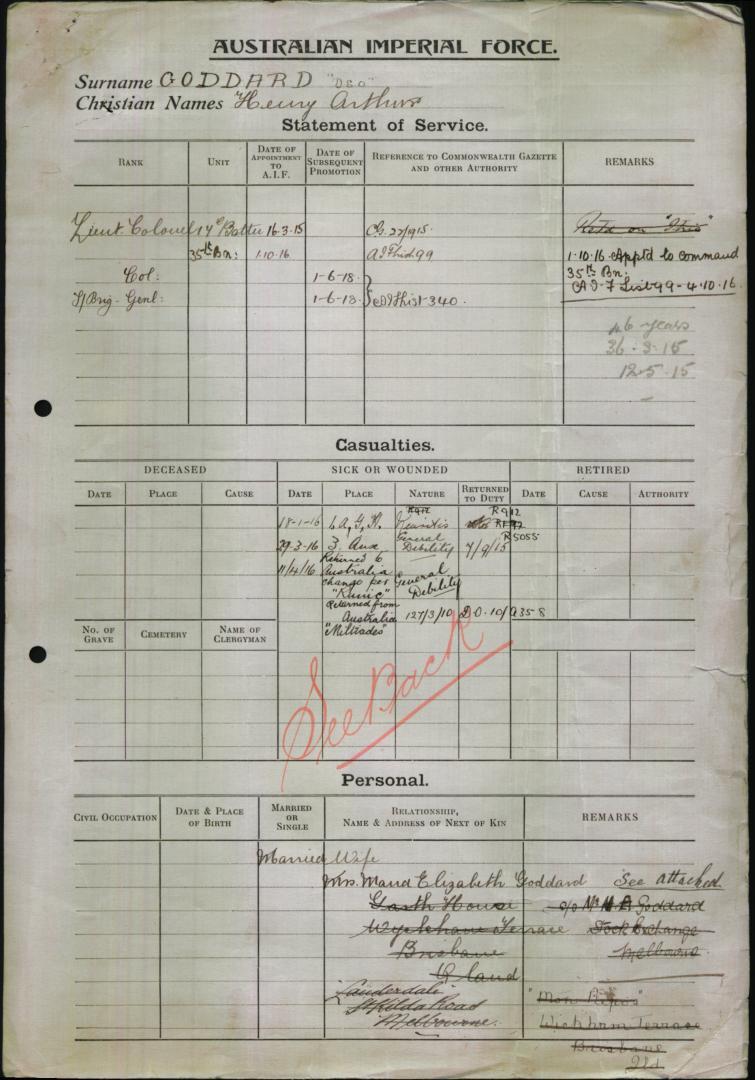 AUSTRALIAN IMPERIAL FORCE.
Surname GODDARD "DSO"
Christian Names Henry Arthur
Statement of Service.
RANK
UNIT
DATE OF APPOINTMENT TO A.I.F.
DATE OF SUBSEQUENT PROMOTION
REFERENCE TO COMMONWEALTH GAZETTE AND OTHER AUTHORITY
REMARKS
Lieut Colonel 17th 16-3-15 C.G. 27/1915
35th Bn: 1.10.16 99 1.10.16 App'td to command
35th Bn:
A.I.F List 99 - 4.10.16.
Col: 1-6-18
T/Brig-Genl: 1-6-18 340.
46 years
12.5.15
Casualties.
DECEASED
SICK OR WOUNDED
RETIRED
DATE
PLACE
CAUSE
DATE
PLACE
NATURE
RETURNED TO DUTY
DATE
CAUSE
AUTHORITY
18-1-16 R912
29-3-16 3. Aux General Debility 7/9/15 R5055
11/4/16 Returned to
Australia
change per General
"Runic" Debility
Returned from
Australia D.O.
"Miltiades"
NO. OF GRAVE
CEMETERY
NAME OF CLERGYMAN
See Back
Personal.
CIVIL OCCUPATION
DATE & PLACE OF BIRTH
MARRIED OR SINGLE
RELATIONSHIP, NAME & ADDRESS OF NEXT OF KIN
REMARKS
Married Wife
Mrs. Maud Elizabeth Goddard See attached.
Garth House c/o Mr H A Goddard
Wyckham Terrace Stock Exchange
Brisbane Melbourne
Q'land
"Lauderdale"
St Kilda Road "Mon Repos"
Melbourne. Wickham Terrace
Brisbane
Qld